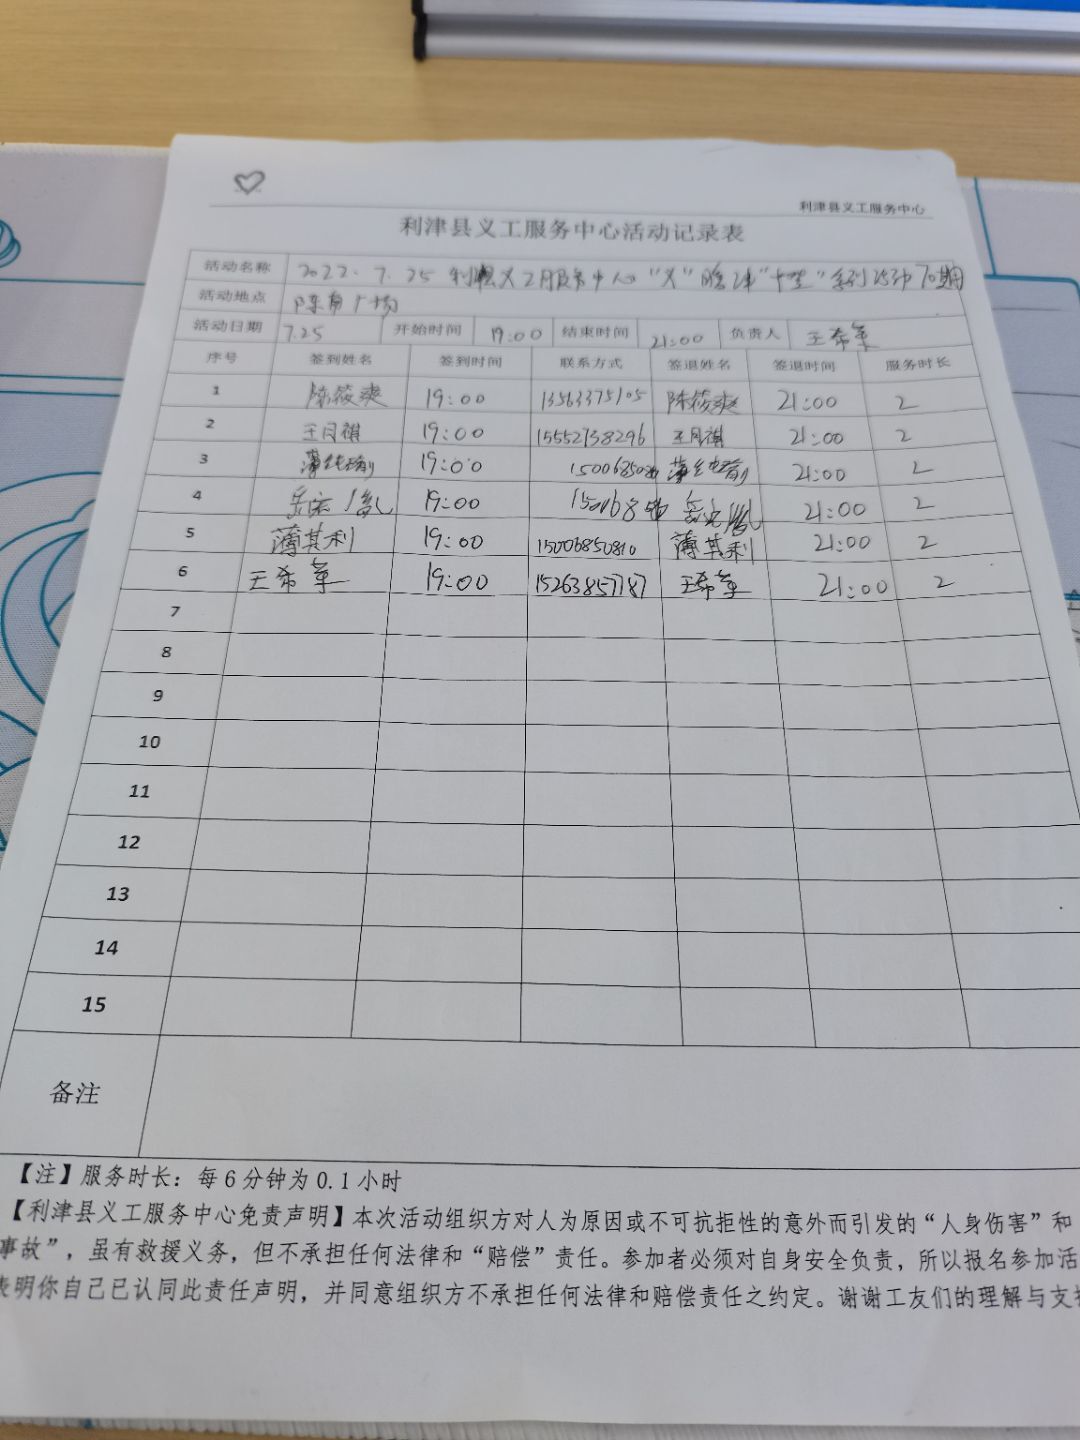 利津县义工服务中心
利津县义工服务中心活动记录表
活动名称 2022.7.25 利津义工服务中心“义”
活动地点 广场
活动日期 7.25 开始时间 19:00 结束时间 21:00 负责人 王希军
序号 签到姓名 签到时间 联系方式 签退姓名 签退时间 服务时长
1 陈筱爽 19:00 13563375105 陈筱爽 21:00 2
2 王月祺 19:00 15552738296 王月祺 21:00 2
3 19:00 21:00 2
4 19:00 21:00 2
5 薄其利 19:00 15006850810 薄其利 21:00 2
6 王希军 19:00 15263857187 王希军 21:00 2
7
8
9
10
11
12
13
14
15
备注
【注】服务时长：每6分钟为0.1小时
【利津县义工服务中心免责声明】本次活动组织方对人为原因或不可抗拒性的意外而引发的“人身伤害”和
事故”，虽有救援义务，但不承担任何法律和“赔偿”责任。参加者必须对自身安全负责，所以报名参加活
表明你自己已认同此责任声明，并同意组织方不承担任何法律和赔偿责任之约定。谢谢工友们的理解与支持